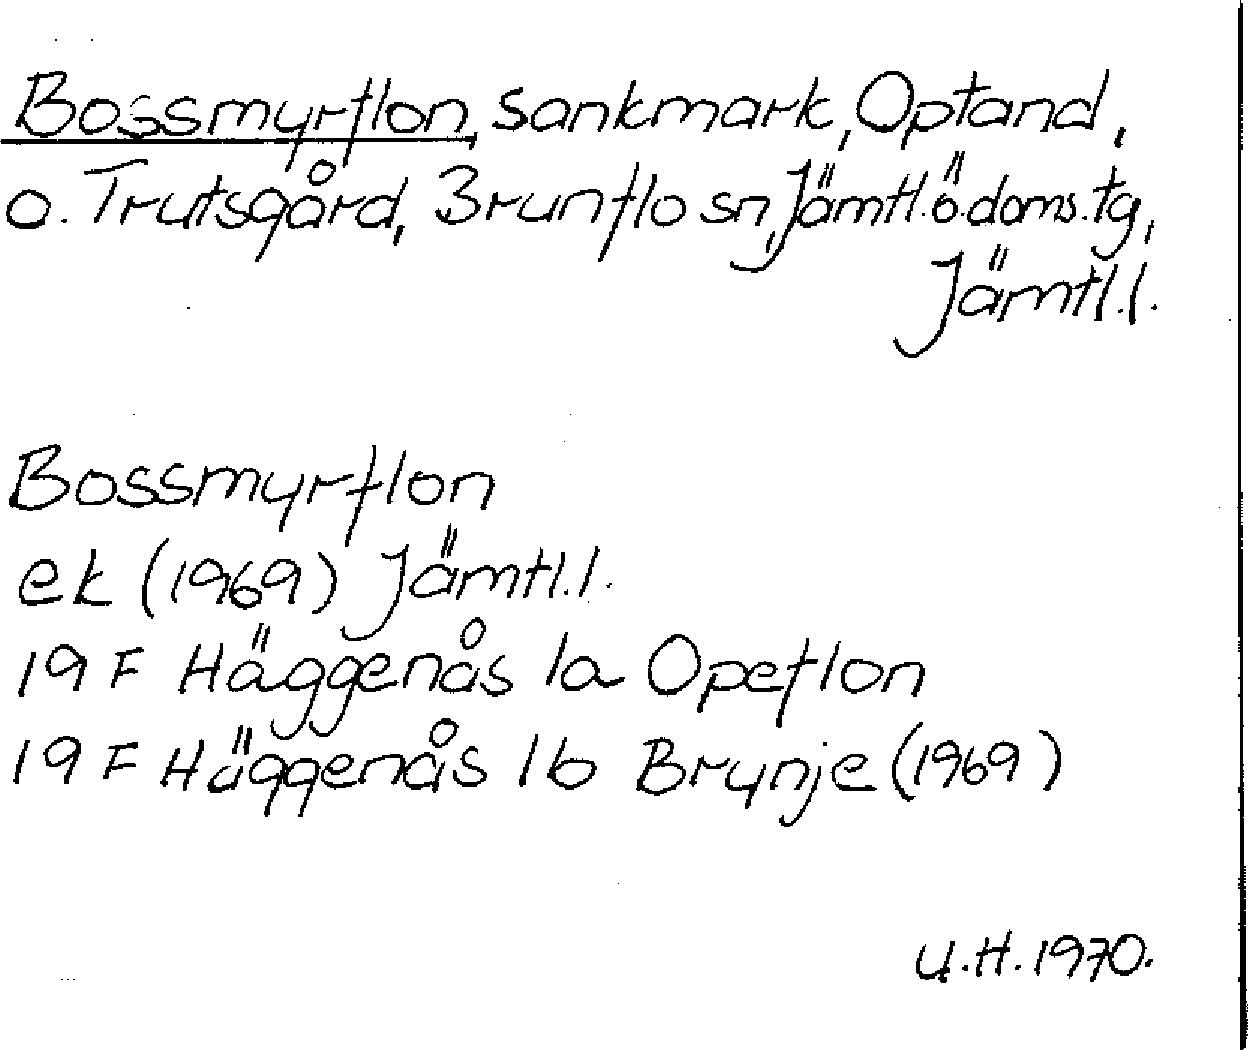 Bossmyrflon, sankmark, Optand,
o. Trutsgård, Brunflo sn, Jämtl.ö.doms.tg,
Jämtl.l.
Bossmyrflon
ek (1969) Jämtl.l.
19 F Häggenås 1a Opeflon
19 F Häggenås 1b Brynje (1969)
U.H. 1970.